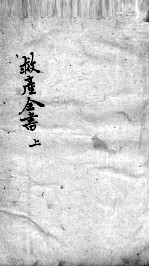 救產全書上